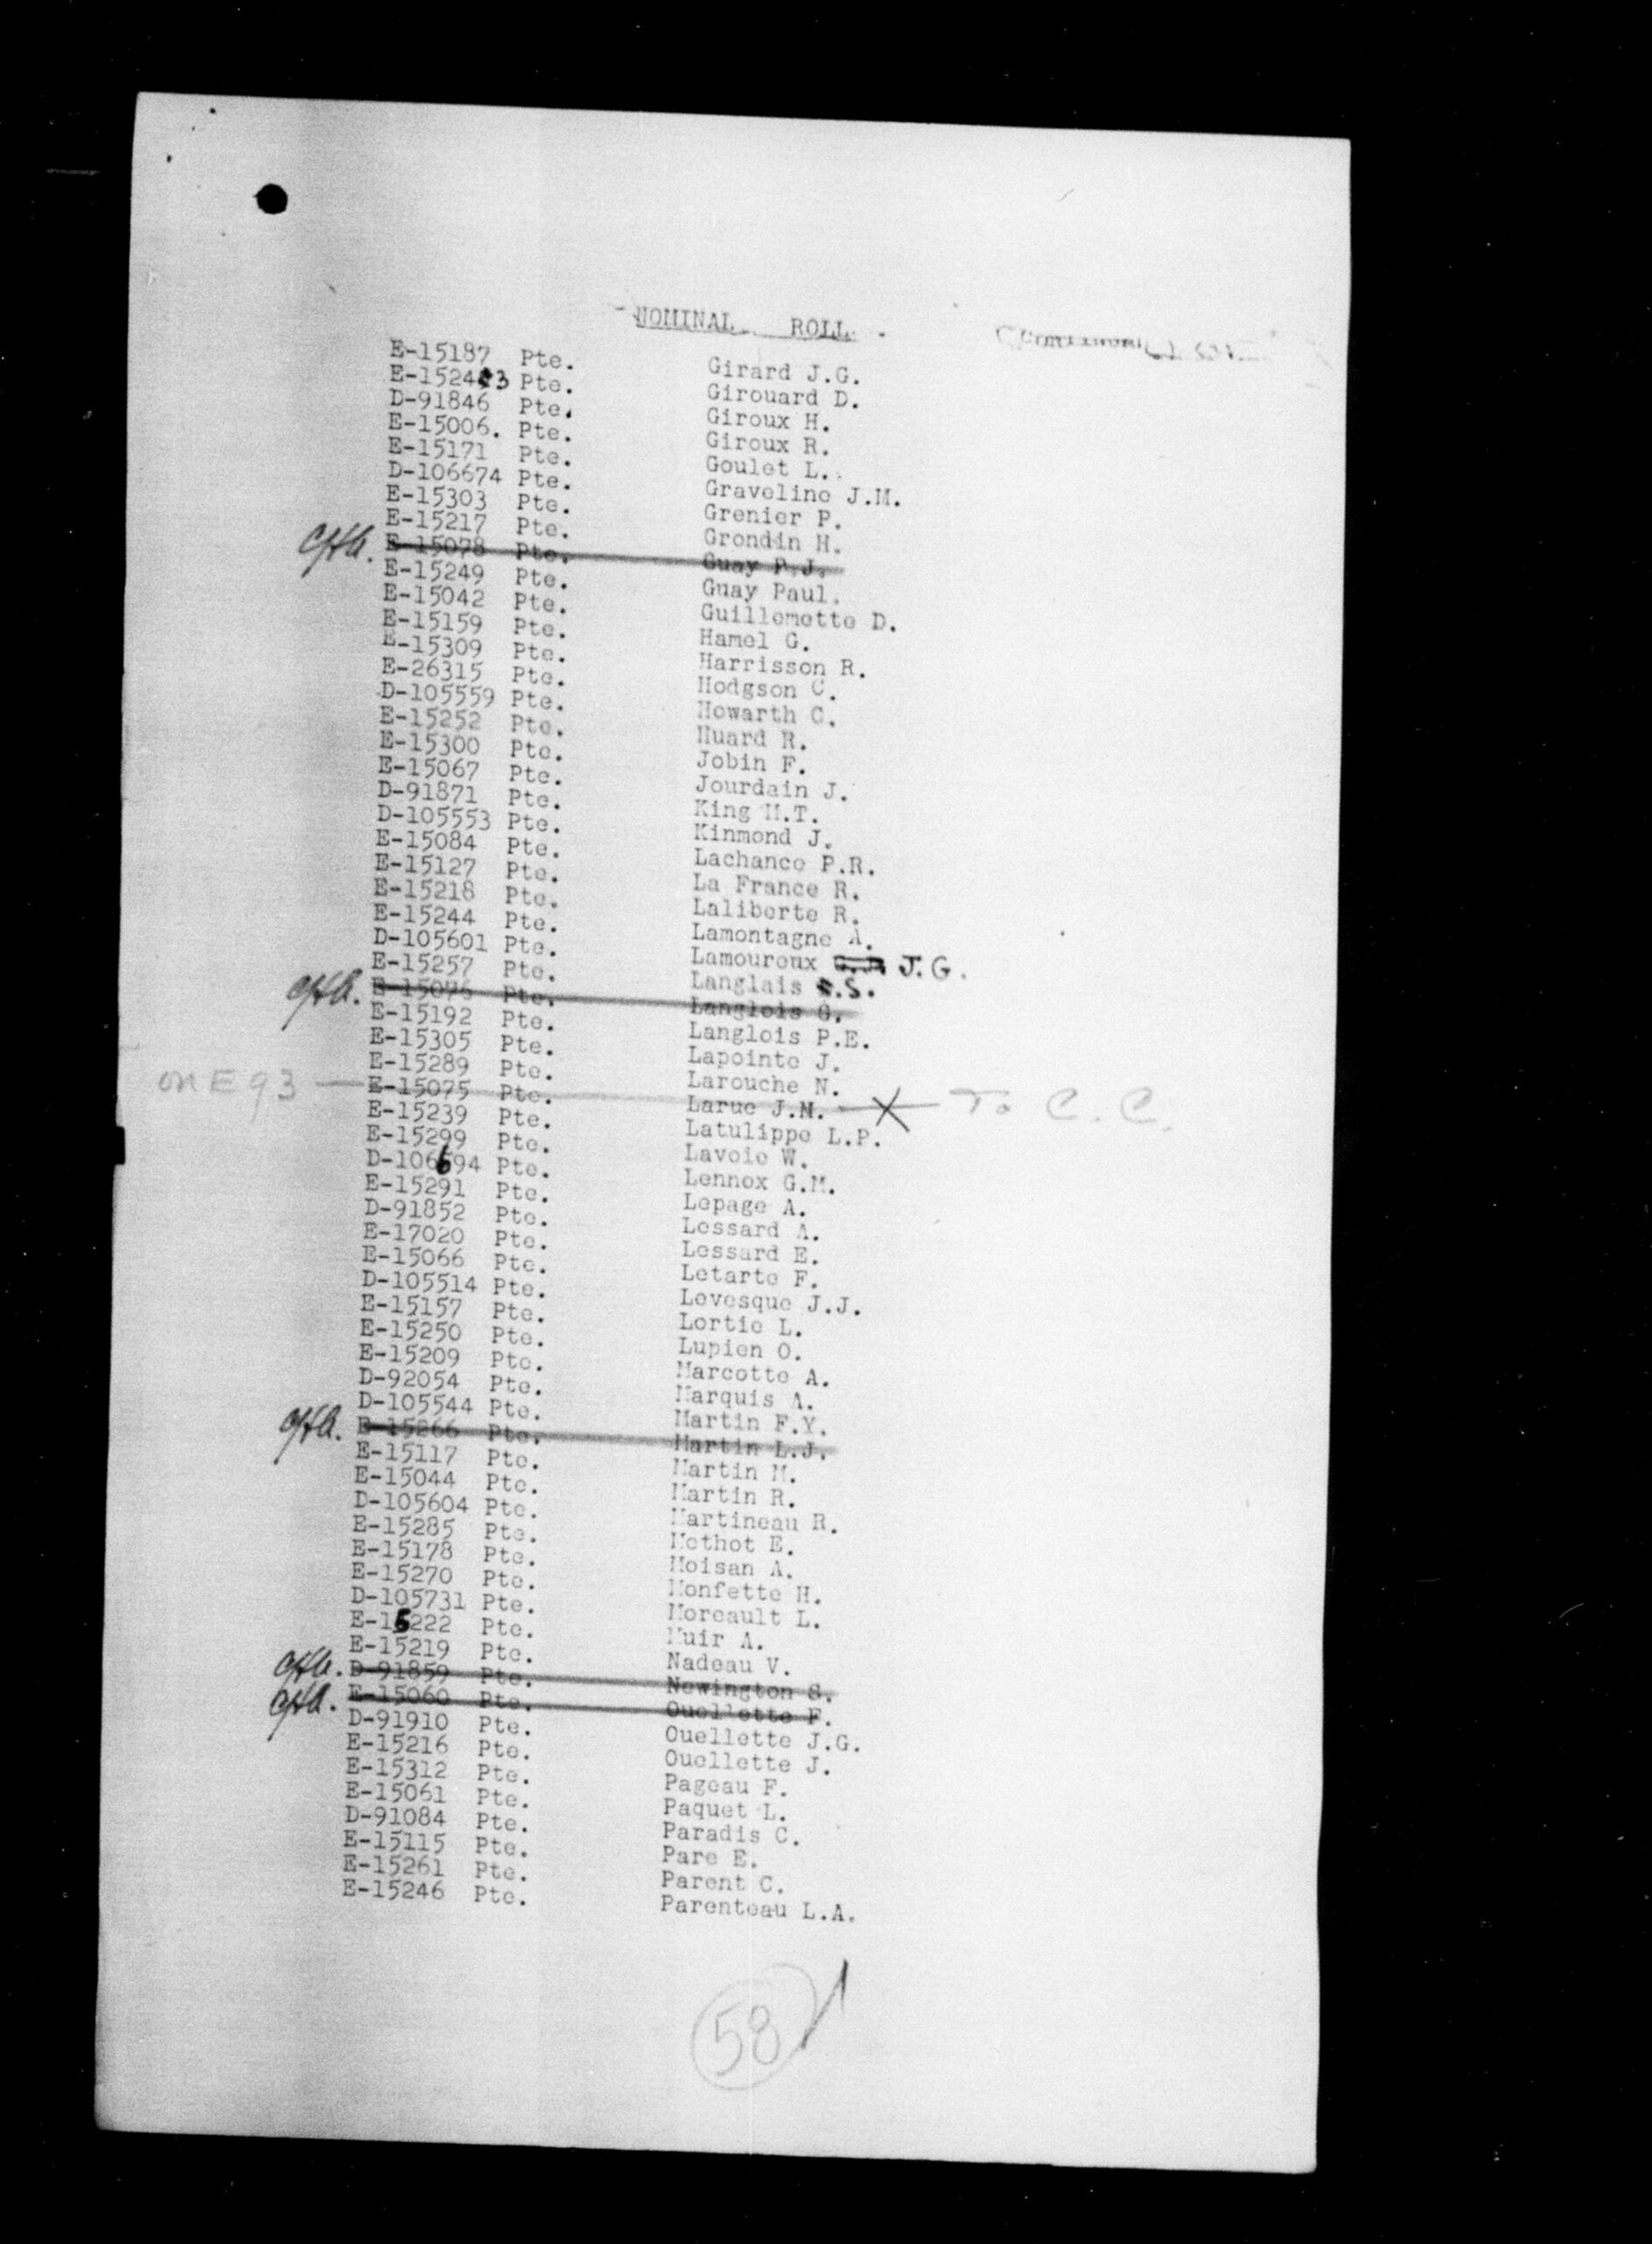 NOMINAL ROLL
E-15187 Pte. Girard J.G.
E-15243 Pte. Girouard D.
D-91846 Pte. Giroux H.
E-15006. Pte. Giroux R.
E-15171 Pte. Goulet L.
D-106674 Pte. Graveline J.M.
E-15303 Pte. Grenier P.
E-15217 Pte. Grondin H.
E-15078 Pte. Guay P.J.
E-15249 Pte. Guay Paul.
E-15042 Pte. Guillemette D.
E-15159 Pte. Hamel G.
E-15309 Pte. Harrisson R.
E-26315 Pte. Hodgson C.
D-105559 Pte. Howarth C.
E-15252 Pte. Huard R.
E-15300 Pte. Jobin F.
E-15067 Pte. Jourdain J.
D-91871 Pte. King H.T.
D-105553 Pte. Kinmond J.
E-15084 Pte. Lachance P.R.
E-15127 Pte. La France R.
E-15218 Pte. Laliberte R.
E-15244 Pte. Lamontagne A.
D-105601 Pte. Lamoureux J.G.
E-15257 Pte. Langlais S.
E-15076 Pte. Langlois G.
E-15192 Pte. Langlois P.E.
E-15305 Pte. Lapointe J.
E-15289 Pte. Larouche N.
on E 93 E-15075 Pte. Larue J.M. X To C.C.
E-15239 Pte. Latulippe L.P.
E-15299 Pte. Lavoie W.
D-106694 Pte. Lennox G.M.
E-15291 Pte. Lepage A.
D-91852 Pte. Lessard A.
E-17020 Pte. Lessard E.
E-15066 Pte. Letarte F.
D-105514 Pte. Levesque J.J.
E-15157 Pte. Lortie L.
E-15250 Pte. Lupien O.
E-15209 Pte. Marcotte A.
D-92054 Pte. Marquis A.
D-105544 Pte. Martin F.Y.
E-15266 Pte. Martin L.J.
E-15117 Pte. Martin M.
E-15044 Pte. Martin R.
D-105604 Pte. Martineau R.
E-15285 Pte. Methot E.
E-15178 Pte. Moisan A.
E-15270 Pte. Monfette H.
D-105731 Pte. Moreault L.
E-15222 Pte. Muir A.
E-15219 Pte. Nadeau V.
D-91859 Pte. Newington S.
E-15060 Pte. Ouellette F.
D-91910 Pte. Ouellette J.G.
E-15216 Pte. Ouellette J.
E-15312 Pte. Pageau F.
E-15061 Pte. Paquet L.
D-91084 Pte. Paradis C.
E-15115 Pte. Pare E.
E-15261 Pte. Parent C.
E-15246 Pte. Parenteau L.A.
58